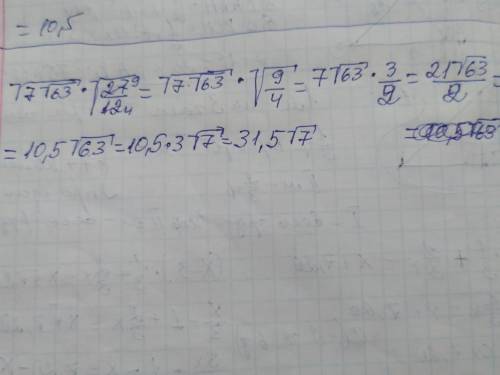 = 10,5
√7√63 · √27⁹/12₄ = √7√63 · √9/4 = 7√63 · 3/2 = 21√63/2 =
= 10,5√63 = 10,5·3√7 = 31,5√7